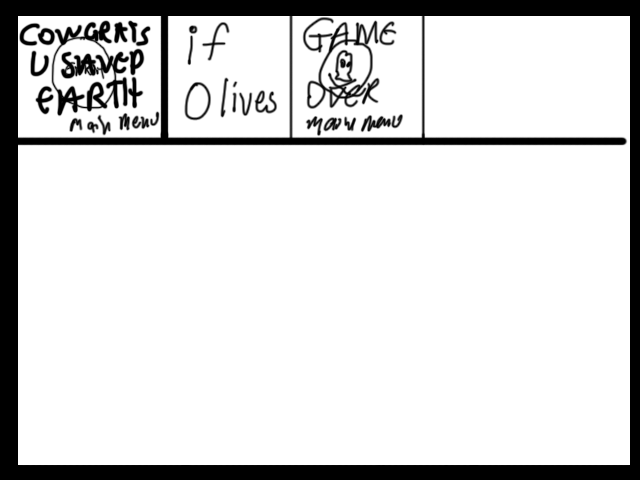 CONGRATS
U SAVED
EARTH
Main Menu
if
0 lives
GAME
OVER
Main Menu